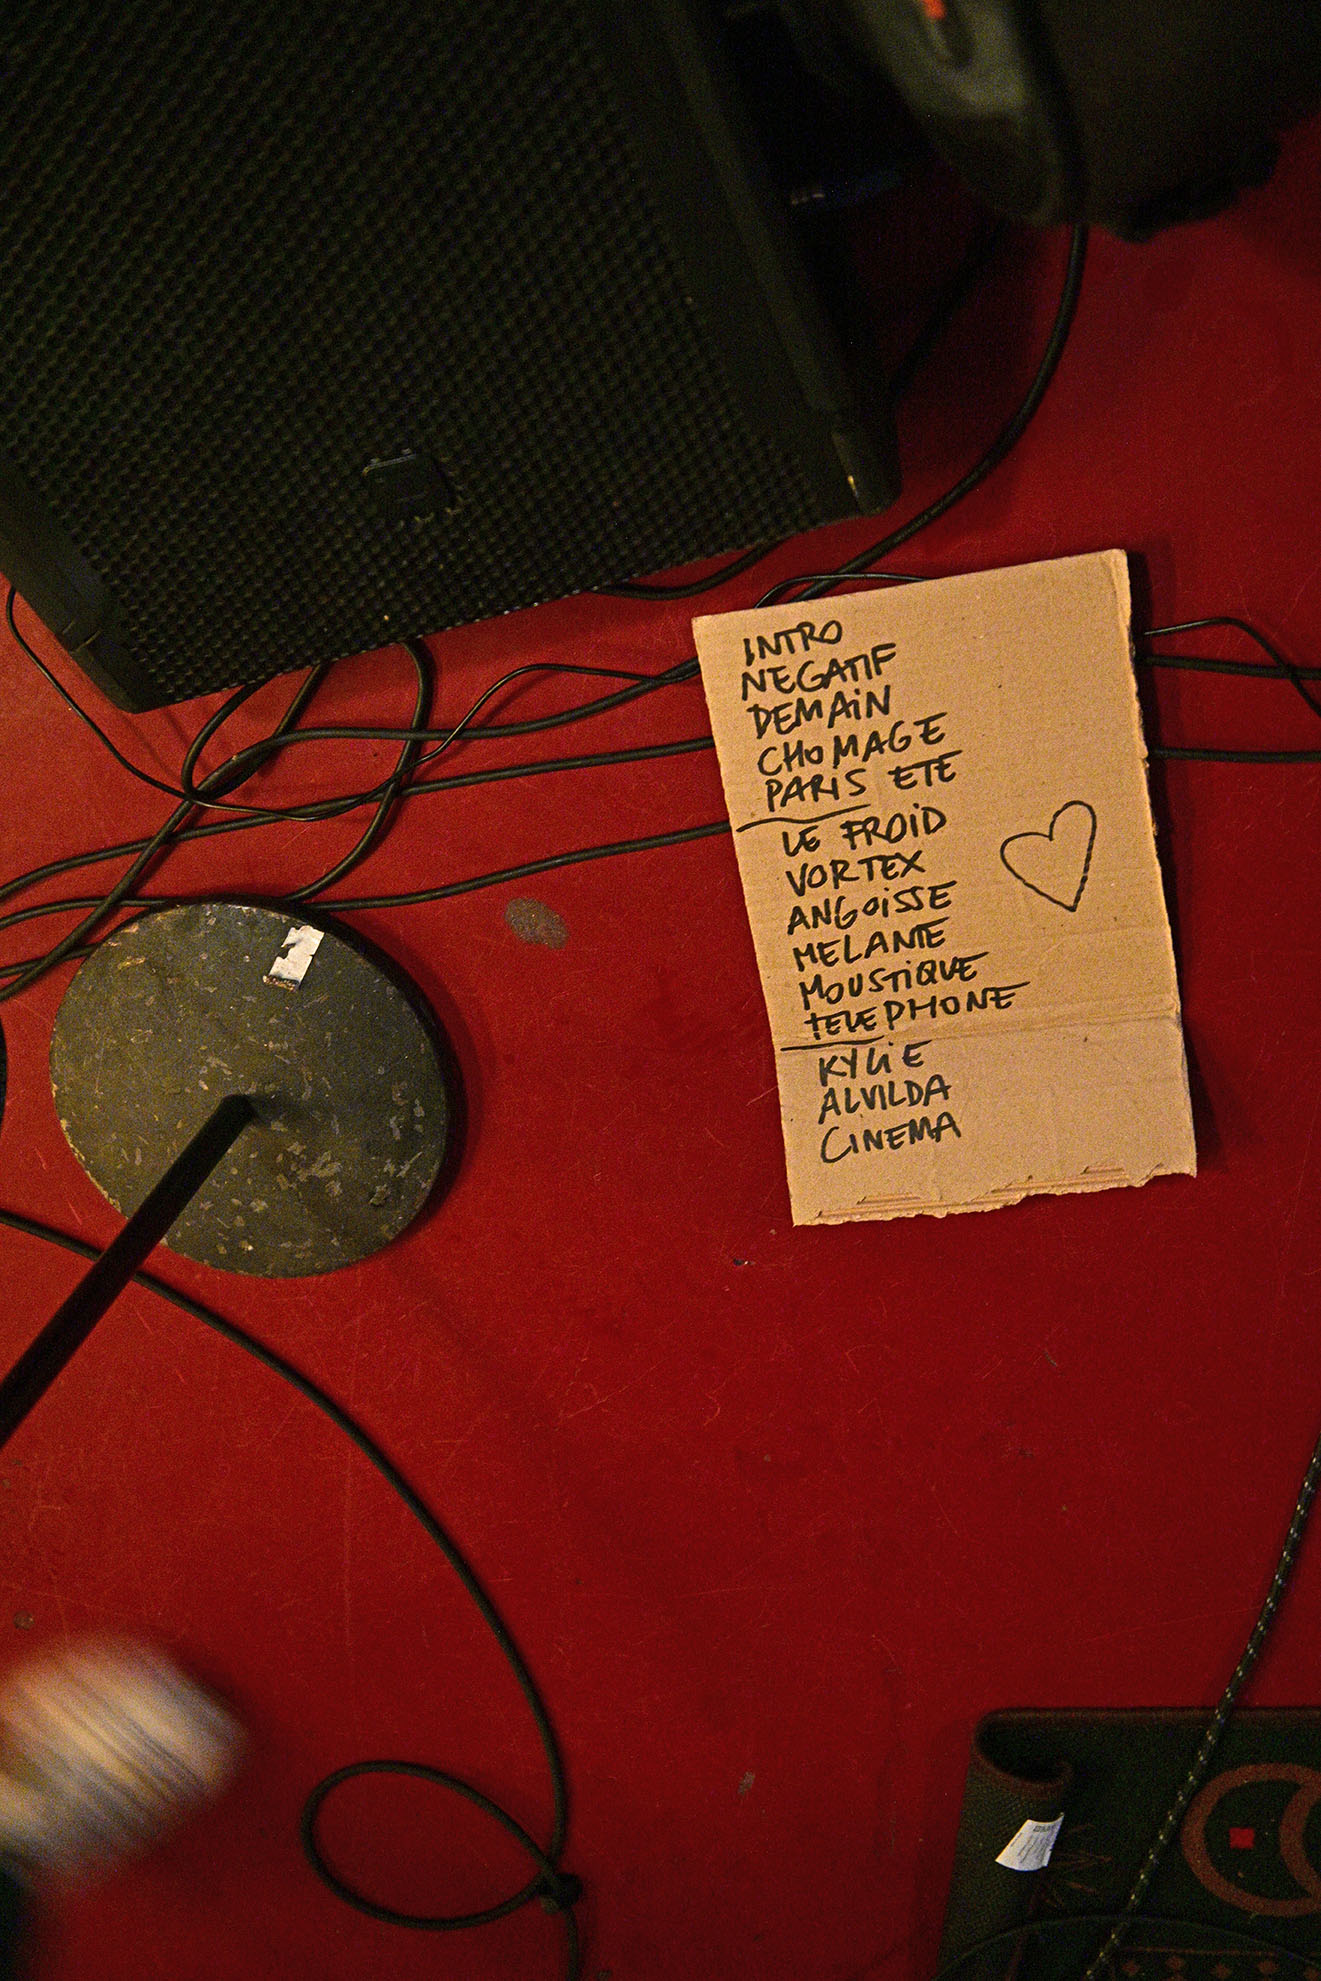 INTRO
NEGATIF
DEMAiN
CHOMAGE
PARIS ETE
LE FROID
VORTEX
ANGOiSSE
MELANIE
MOUSTiQUE
TELEPHONE
KYLiE
ALVILDA
CINEMA